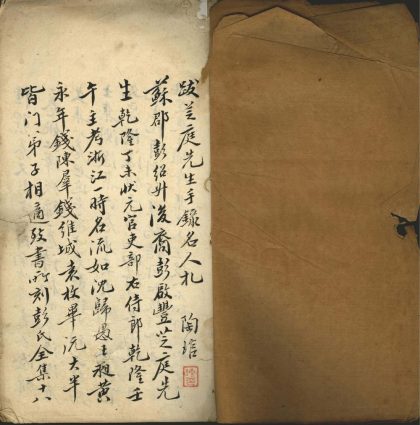 跋芝庭先生手錄名人札 陶琯
蘇郡彭紹升後裔彭啟豐芝庭先
生乾隆丁未狀元官吏部右侍郎乾隆壬
午主考浙江一時名流如沈歸愚王昶黃
永年錢陳羣錢維城袁枚畢沅大半
皆门弟子相適致書所刻彭氏全集十八